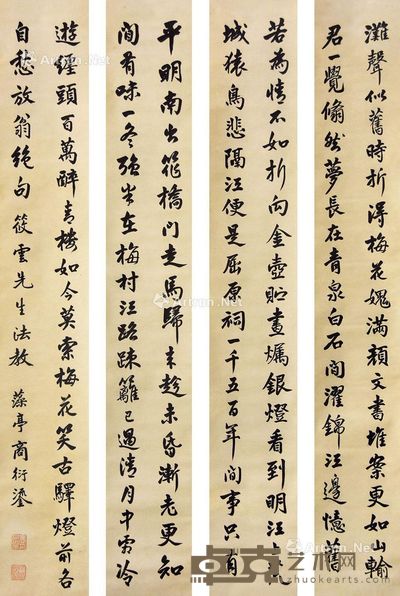 灘聲似舊時折得梅花愧滿顏文書堆案更如山輸
君一覺翛然夢長在青泉白石間濯錦江邊憶舊
若為情不如折向金壺貯畫燭銀燈看到明江上荒
城猿鳥悲隔江便是屈原祠一千五百年間事只有
平明南出筰橋門走馬歸來趁未昏漸老更知
間有味一冬強半在梅村江路踈籬已過清月中霜冷
遊纏頭百萬醉青樓如今莫索梅花笑古驛燈前各
自愁放翁絕句 筱雲先生法教 藻亭商衍鎏
Artron.Net
卓克艺术网
zhuokearts.com